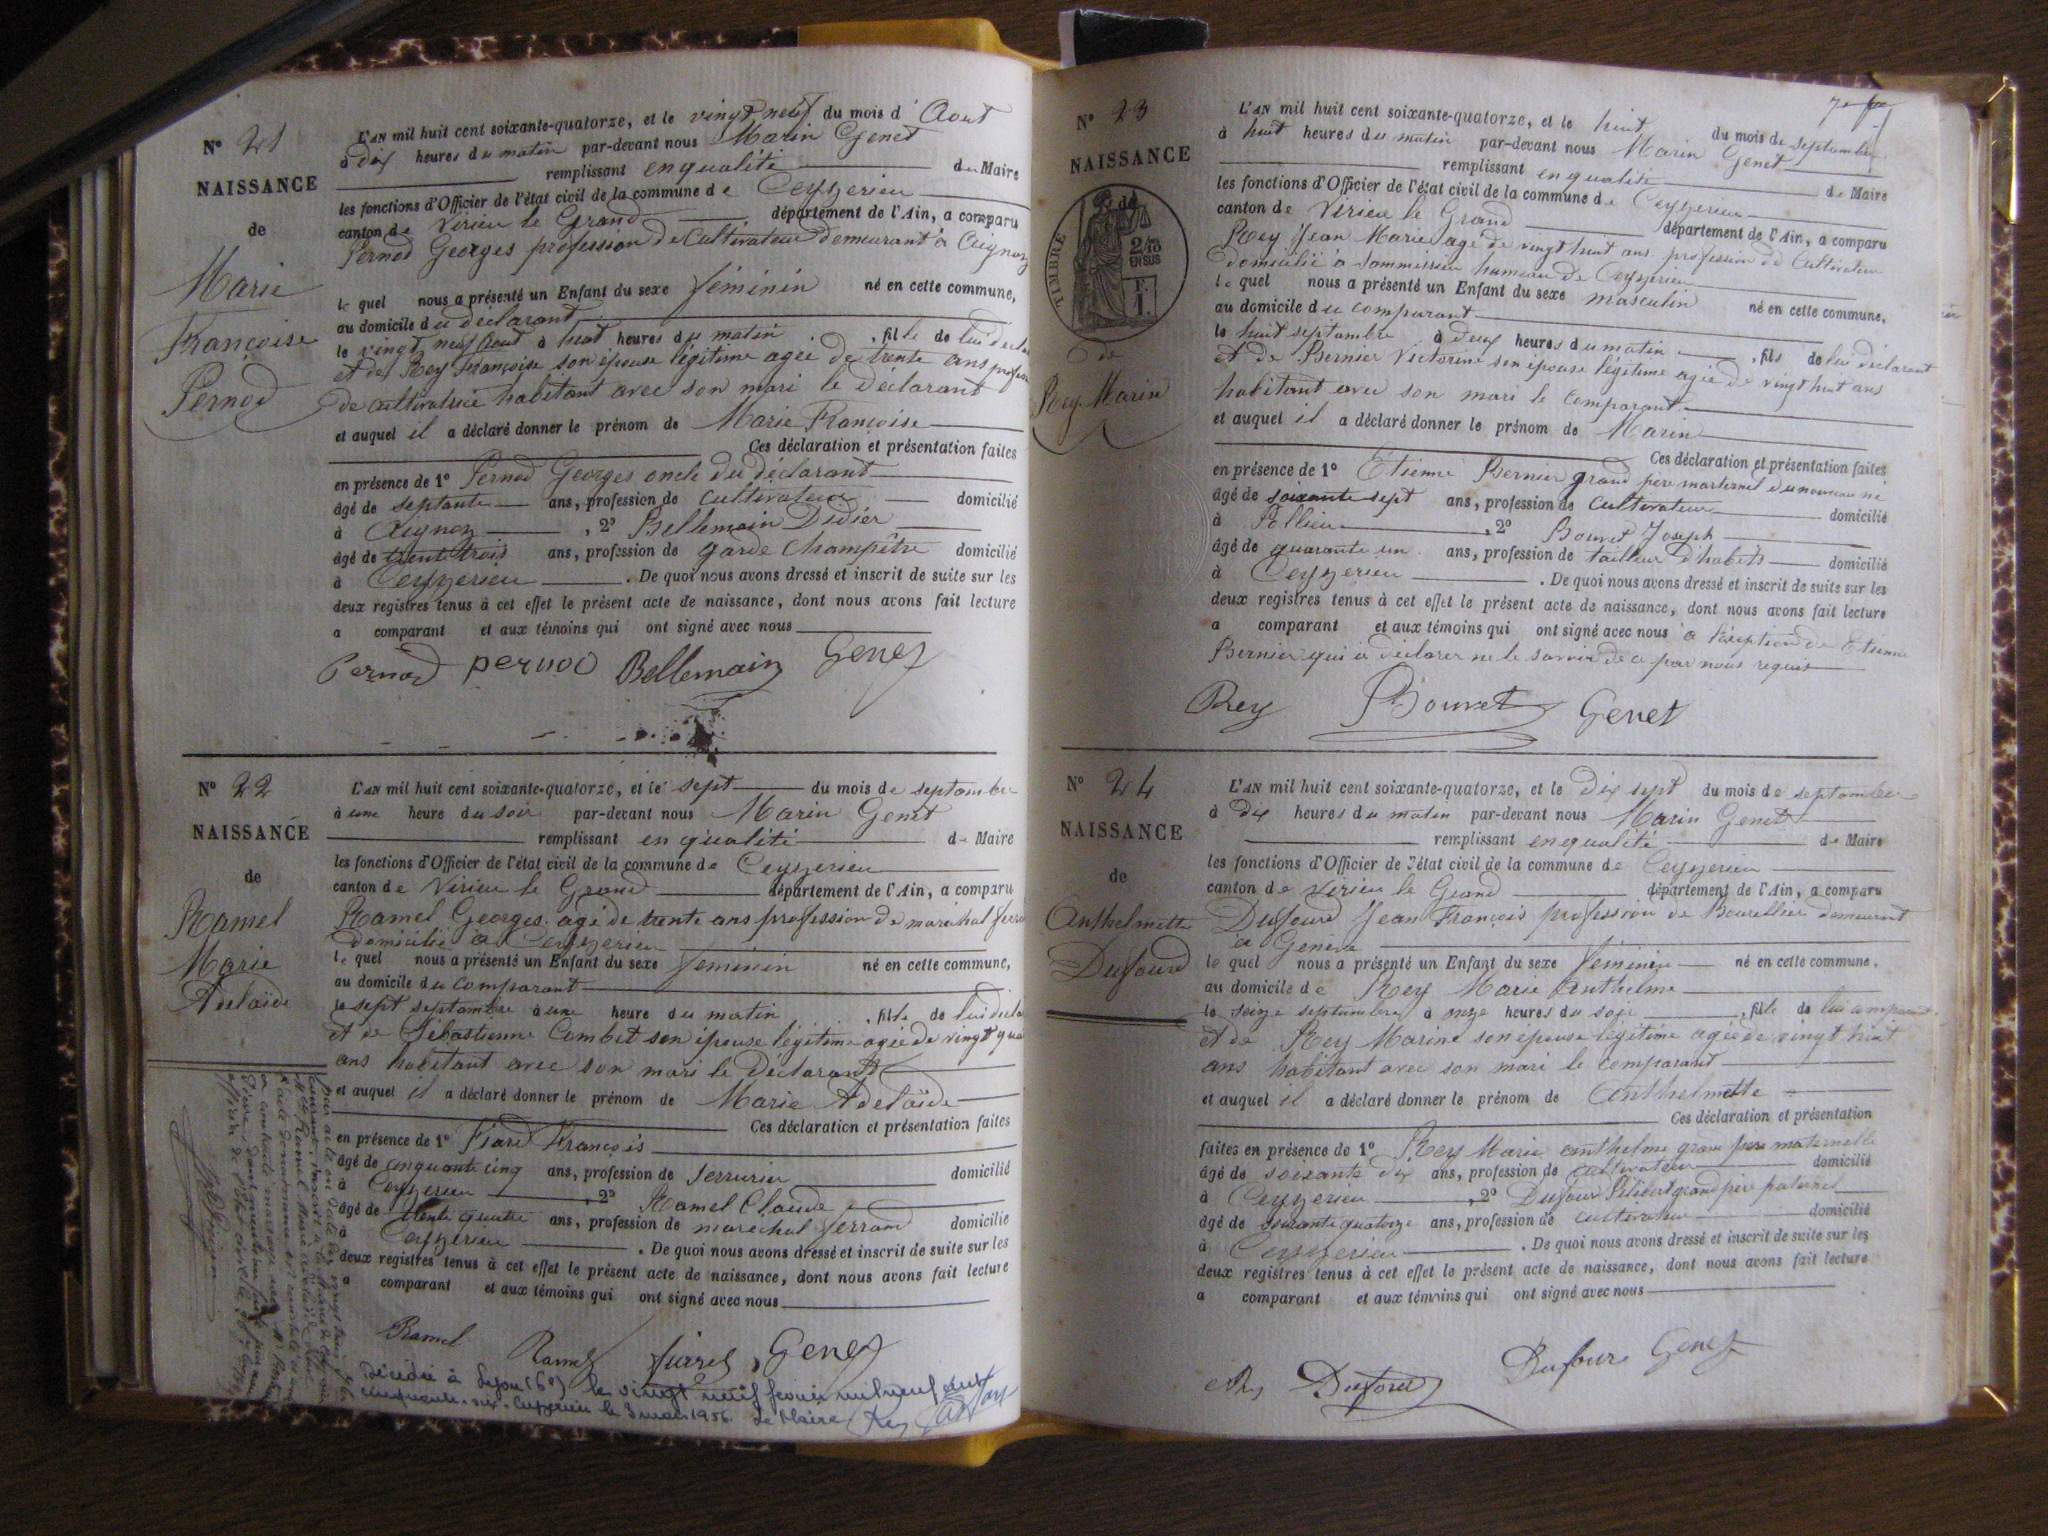 N° 21
NAISSANCE
de
Marie
Françoise
Pernod
L'AN mil huit cent soixante-quatorze, et le vingt neuf du mois d'Aout
à dix heures du matin par-devant nous Marin Genet
remplissant en qualité de Maire
les fonctions d'Officier de l'état civil de la commune de Ceyzerieu
canton de Virieu le Grand département de l'Ain, a comparu
Pernod Georges profession de Cultivateur demeurant à Aignoz
le quel nous a présenté un Enfant du sexe féminin né en cette commune,
au domicile du déclarant
le vingt neuf Aout à huit heures du matin , fille de lui décla
et de Rey Françoise son épouse légitime agée de trente ans profes
de cultivatrice habitant avec son mari le déclarant
et auquel il a déclaré donner le prénom de Marie Françoise
Ces déclaration et présentation faites
en présence de 1° Pernod Georges oncle du déclarant
âgé de septante ans, profession de cultivateur domicilié
à Aignoz , 2° Bellemain Didier
âgé de trent trois ans, profession de garde champêtre domicilié
à Ceyzerieu . De quoi nous avons dressé et inscrit de suite sur les
deux registres tenus à cet effet le présent acte de naissance, dont nous avons fait lecture
a comparant et aux témoins qui ont signé avec nous
Pernod pernod Bellemain Genet
N° 22
NAISSANCE
de
Ramel
Marie
Adelaïde
L'AN mil huit cent soixante-quatorze, et le sept du mois de septembre
à une heure du soir par-devant nous Marin Genet
remplissant en qualité de Maire
les fonctions d'Officier de l'état civil de la commune de Ceyzerieu
canton de Virieu le Grand département de l'Ain, a comparu
Ramel Georges agé de trente ans profession de maréchal ferra
domicilié à Ceyzerieu
le quel nous a présenté un Enfant du sexe féminin né en cette commune,
au domicile du comparant
le sept septembre à une heure du matin , fille de lui décla
et de Sébastienne Combet son épouse légitime agée de vingt qua
ans habitant avec son mari le déclarant
et auquel il a déclaré donner le prénom de Marie Adelaïde
Ces déclaration et présentation faites
en présence de 1° Fiard François
âgé de cinquante cinq ans, profession de serrurier domicilié
à Ceyzerieu , 2° Ramel Claude
âgé de trente quatre ans, profession de marechal ferrand domicilié
à Ceyzerieu . De quoi nous avons dressé et inscrit de suite sur les
deux registres tenus à cet effet le présent acte de naissance, dont nous avons fait lecture
a comparant et aux témoins qui ont signé avec nous
Ramel Ramel Genet
Décédée à Lyon (6e) le vingt neuf février mil neuf cent
cinquante-six. Ceyzerieu le 3 mars 1956 Le Maire
N° 23
NAISSANCE
de
TIMBRE
2/10
EN SUS
F.
1.
de
Rey Marin
L'AN mil huit cent soixante-quatorze, et le huit du mois de septembre
à huit heures du matin par-devant nous Marin Genet
remplissant en qualité de Maire
les fonctions d'Officier de l'état civil de la commune de Ceyzerieu
canton de Virieu le Grand département de l'Ain, a comparu
Rey Jean Marie agé de vingt huit ans profession de Cultivateur
domicilié à Sommissieu hameau de Ceyzerieu
le quel nous a présenté un Enfant du sexe masculin né en cette commune,
au domicile du comparant
le huit septembre à deux heures du matin , fils de lui déclarant
et de Bernier Victorine son épouse légitime agée de vingt huit ans
habitant avec son mari le comparant
et auquel il a déclaré donner le prénom de Marin
Ces déclaration et présentation faites
en présence de 1° Etienne Bernier grand pere marternel du nouveau né
âgé de soixante sept ans, profession de cultivateur domicilié
à Pollieu , 2° Bouvet Joseph
âgé de quarante un ans, profession de tailleur d'habits domicilié
à Ceyzerieu . De quoi nous avons dressé et inscrit de suite sur les
deux registres tenus à cet effet le présent acte de naissance, dont nous avons fait lecture
a comparant et aux témoins qui ont signé avec nous à l'exeption de Etienne
Bernier qui a déclarer ne le savoir de ce par nous requis
Rey Bouvet Genet
N° 24
NAISSANCE
de
Anthelmette
Dufourd
L'AN mil huit cent soixante-quatorze, et le dix sept du mois de septembre
à dix heures du matin par-devant nous Marin Genet
remplissant en qualité de Maire
les fonctions d'Officier de l'état civil de la commune de Ceyzerieu
canton de Virieu le Grand département de l'Ain, a comparu
Dufourd Jean François profession de Bourellier demeurant
à Genève
le quel nous a présenté un Enfant du sexe féminin né en cette commune.
au domicile de Rey Marie Anthelme
le seize septembre à onze heures du soir , fille de lui comparant
et de Rey Marine son épouse légitime agée de vingt huit
ans habitant avec son mari le comparant
et auquel il a déclaré donner le prénom de Anthelmette
Ces déclaration et présentation
faites en présence de 1° Rey Marie anthelme grand pere maternelle
âgé de soixante dix ans, profession de cultivateur domicilié
à Ceyzerieu , 2° Dufour Philibert grand père paternel
âgé de soixante quatorze ans, profession de cultivateur domicilié
à Ceyzerieu . De quoi nous avons dressé et inscrit de suite sur les
deux registres tenus à cet effet le présent acte de naissance, dont nous avons fait lecture
a comparant et aux témoins qui ont signé avec nous
Rey Dufour Dufour Genet